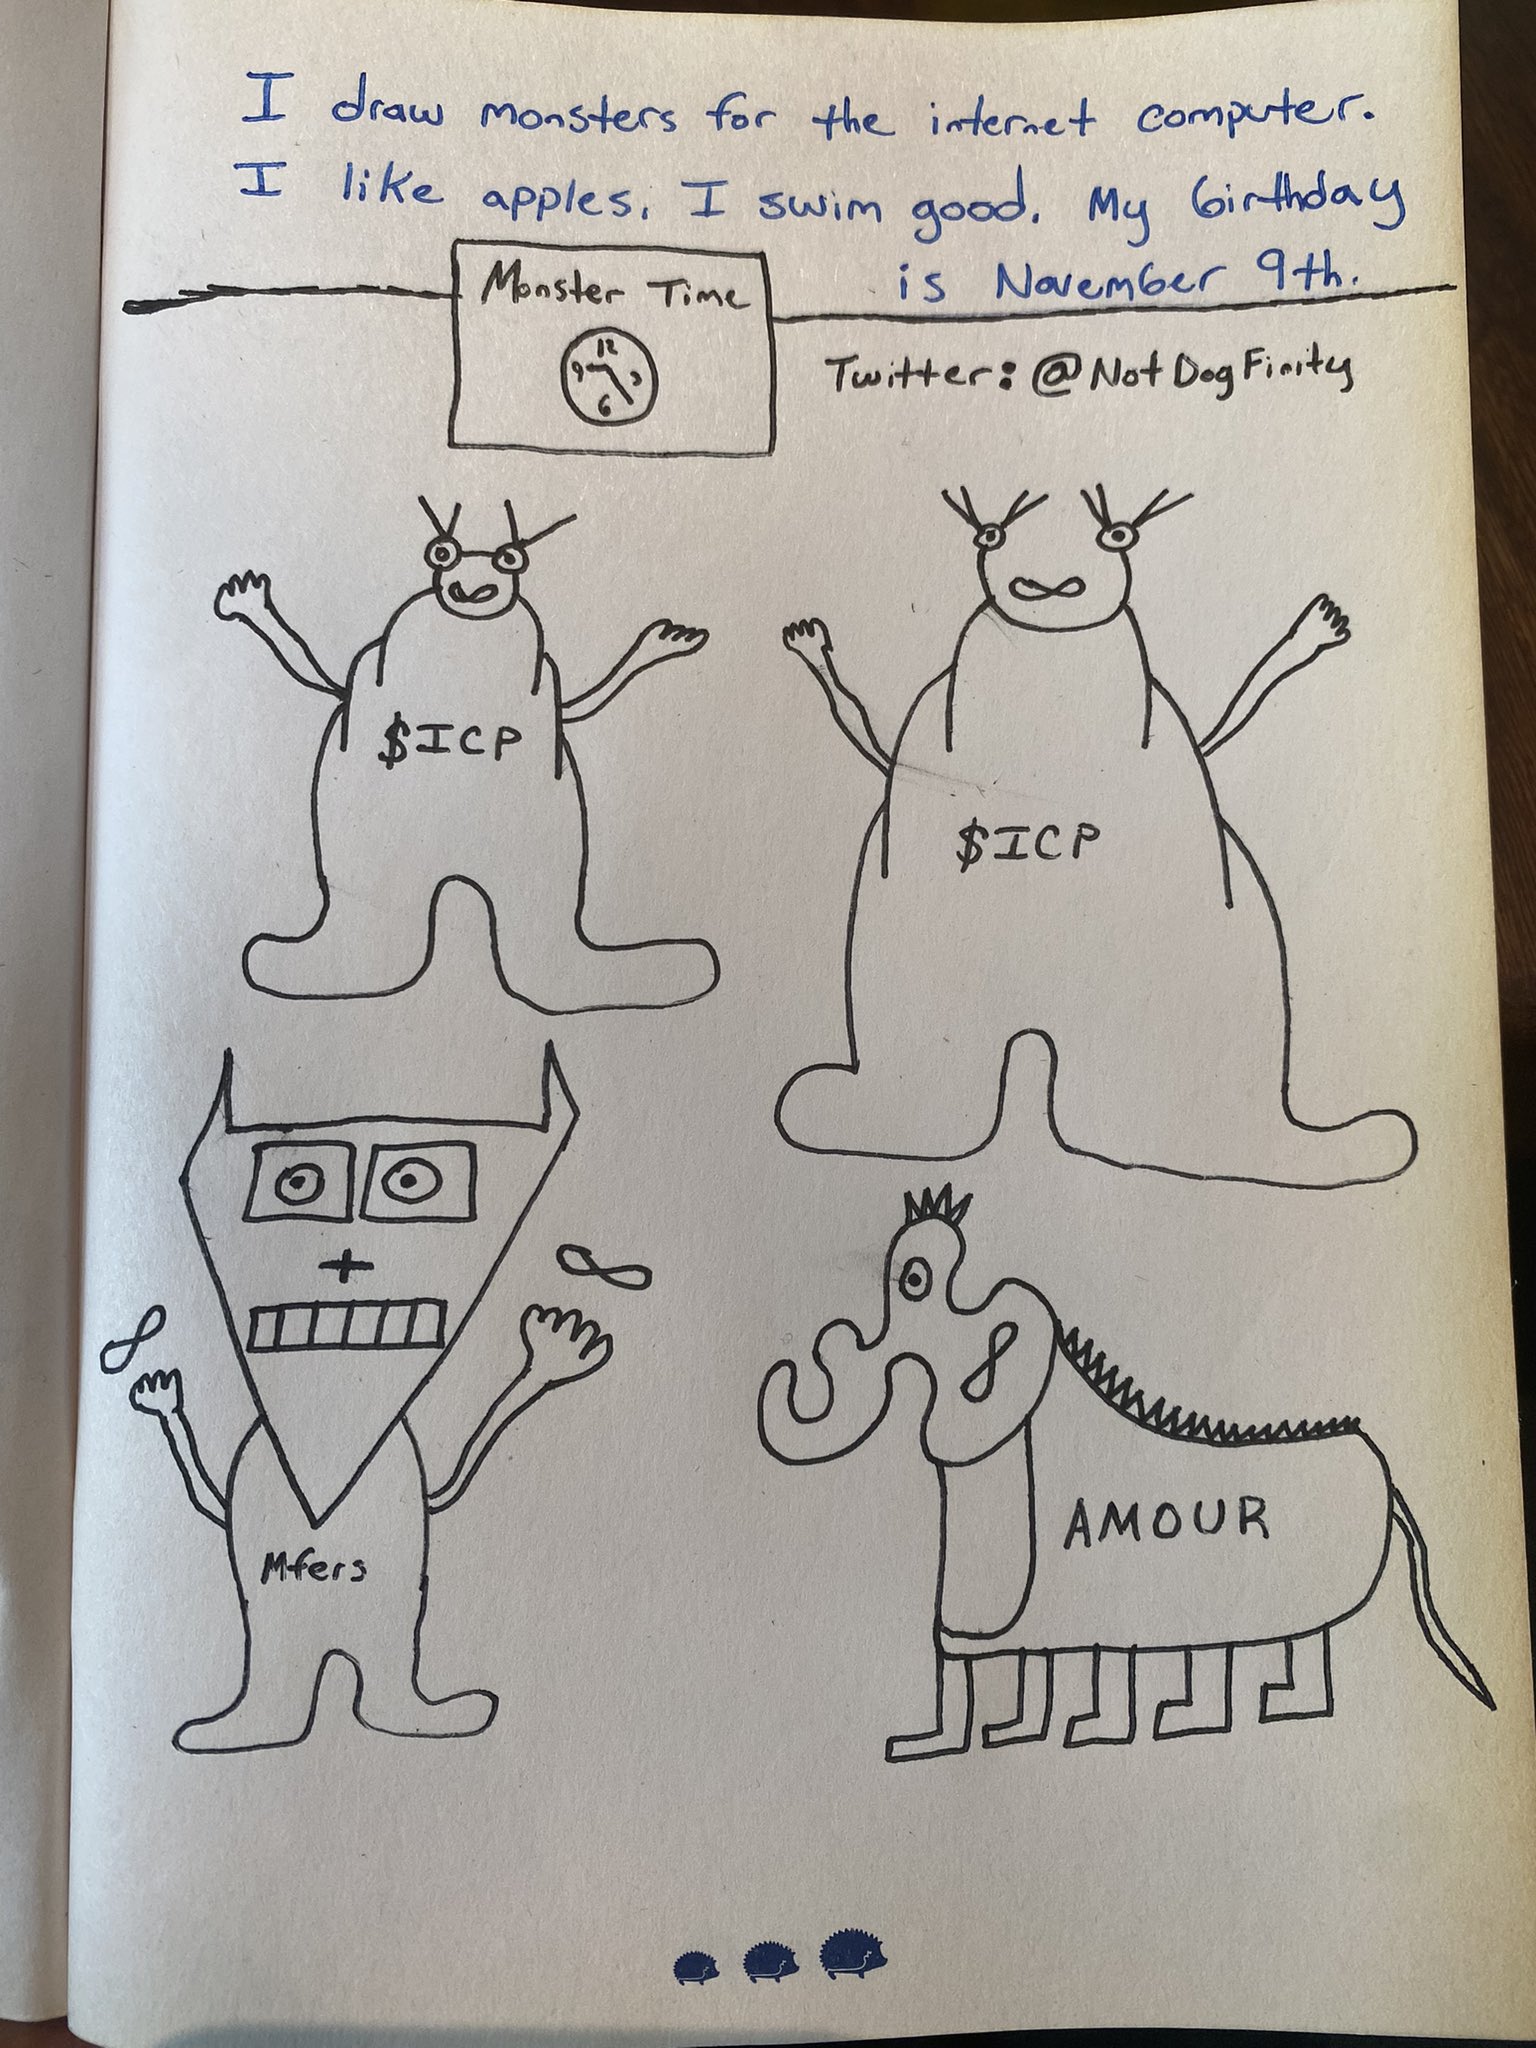 I draw monsters for the internet computer.
I like apples. I swim good. My birthday
is November 9th.
Monster Time
12
9 3
6
Twitter: @NotDogFinity
$ICP
$ICP
Mfers
AMOUR